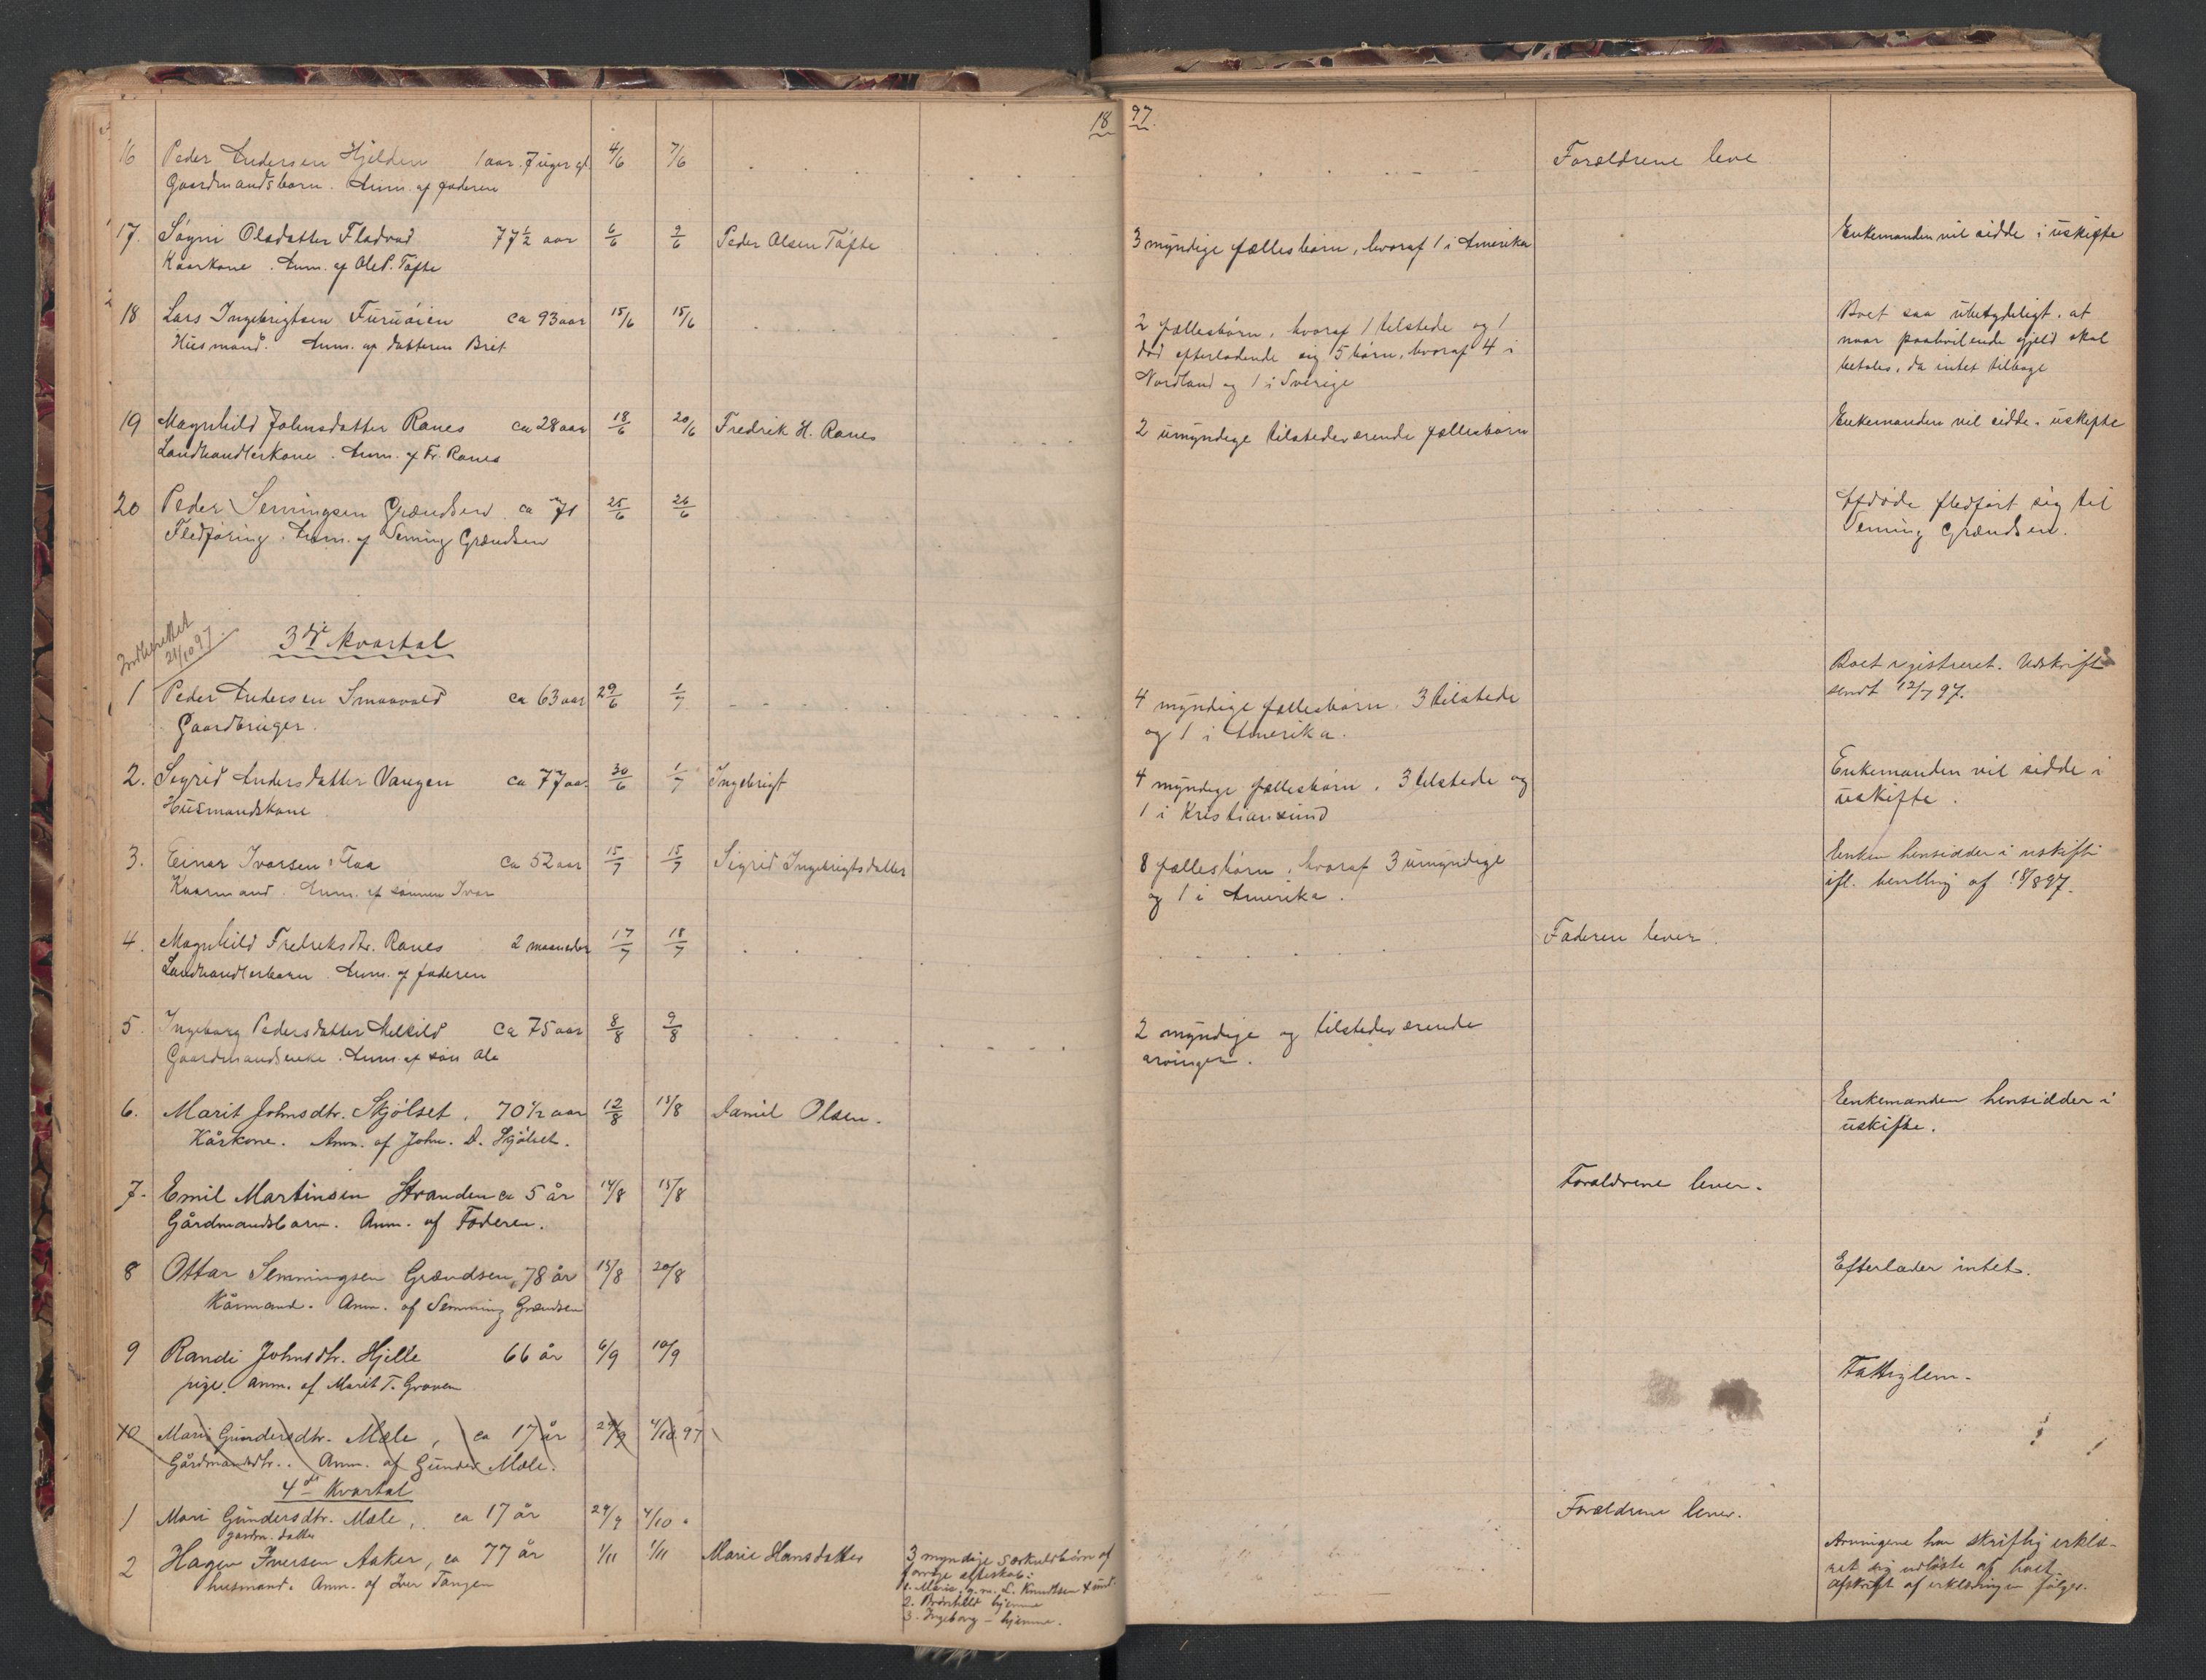 18 97.
16 Peder Andersen Hjelden 1 aar. 7 uger gl. 4/6 7/6 Forældrene leve
Gaardmandsbarn. Anm. af faderen
17. Søgni Olsdatter Fladvad 77 1/2 aar 6/6 9/6 Peder Olsen Tøfte 3 myndige fællesbørn, hvoraf 1 i Amerika Enkemanden vil sidde i uskifte
Kaarkone. Anm. af Ole P. Tøfte
18 Lars Ingebrigtsen Furuøien ca 93 aar 15/6 15/6 2 fællesbørn, hvoraf 1 tilstede og 1 Boet saa ubetydeligt, at
Husmand. Anm. af datteren Brit død efterladende sig 5 børn, hvoraf 4 i naar paahvilende gjeld skal
Nordland og 1 i Sverige betales, da intet tilbage
19 Magnhild Johnsdatter Ranes ca 28 aar 18/6 20/6 Fredrik H. Ranes 2 umyndige tilstedeværende fællesbørn Enkemanden vil sidde i uskifte
Landhandlerkone. Anm. af Fr. Ranes
20 Peder Semingsen Grændsen ca 71 25/6 26/6 Afdøde fledført sig til
Fledføring. Anm. af Seming Grændsen Seming Grændsen.
Indberettet
21/10 97. 3die kvartal
1 Peder Andersen Smaavold ca 63 aar 29/6 1/7 4 myndige fællesbørn. 3 tilstede Boet registreret. Udskrift
Gaardbruger. og 1 i Amerika. sendt 12/7 97.
2. Sigrid Andersdatter Vangen ca 77 aar 30/6 1/7 Ingebrigt 4 myndige fællesbørn, 3 tilstede og Enkemanden vil sidde i
Husmandskone 1 i Kristiansund uskifte.
3. Einar Ivarsen Flaa ca 52 aar 15/7 15/7 Sigrid Ingebrigtsdatter 8 fællesbørn, hvoraf 3 umyndige Enken hensidder i uskifte
Kaarmand. Anm. af sønnen Ivar og 1 i Amerika. ifl. bevllng af 18/8 97.
4. Magnhild Fredriksdtr. Ranes 2 maaneder 17/7 18/7 Faderen lever.
Landhandlerbarn. Anm. af faderen
5. Ingeborg Pedersdatter Melkild ca 75 aar 8/8 9/8 2 myndige og tilstedeværende
Gaardmandsenke. Anm. af søn Ole arvinger.
6. Marit Johnsdtr. Skjølset, 70 1/2 aar 12/8 13/8 Daniel Olsen. Eenkemanden hensidder i
Kårkone. Anm. af John. D. Skjølset. uskifte.
7. Emil Martinsen Stranden ca 5 år 14/8 15/8 Forældrene lever.
Gårdmandsbarn. Anm. af Faderen.
8 Ottar Semmingsen Grændsen, 78 år 15/8 20/8 Efterlader intet.
Kårmand. Anm. af Semming Grændsen
9 Randi Johnsdtr. Hjelle 66 år 6/9 10/9 Fattiglem.
pige. Anm. af Marit T. Graven
10 Mari Gundersdtr. Mæle, ca 17 år 29/9 4/10.97
Gårdmandsdtr. Anm. af Gunder Mæle.
4de Kvartal
1 Mari Gundersdtr. Mæle, ca 17 år 29/9 4/10. Forældrene lever.
gårdm. datter
2 Hagen Iversen Aaker, ca 77 år 1/11 1/11 Marie Hansdatter 3 myndige særkuldsbørn af Arvingene har skriftlig erklæ-
husmand. Anm. af Iver Tangen forrige ægteskab: ret sig udløste af boet.
1. Marie, g. m. L. Knudtsen X sund. Afskrift af erklæringen følger.
2. Brønhild hjemme
3. Ingeborg - hjemme.